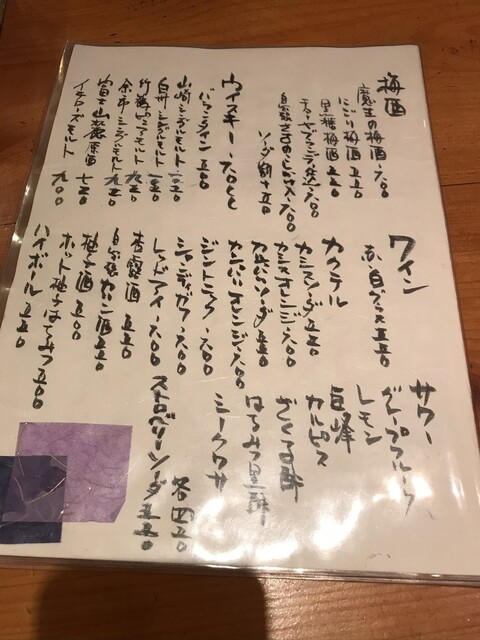 梅酒
魔王の梅酒 六〇〇
にごり梅酒 五五〇
黒糖梅酒 五五〇
ソーダ割 十五〇
ウイスキー 六〇cc
バランタイン 五〇〇
山崎シングルモルト
白州シングルモルト
竹鶴ピュアモルト 九五〇
余市シングルモルト 九五〇
富士山麓原酒 七五〇
イチローズモルト 九〇〇
ワイン
赤・白グラス 五五〇
カクテル
カシスソーダ 五五〇
カシスオレンジ 六〇〇
カンパリソーダ 五五〇
カンパリオレンジ 六〇〇
ジントニック 六〇〇
シャンディガフ 六〇〇
レッドアイ 六〇〇
杏露酒 五五〇
自家製カリン酒 五五〇
柚子酒 五〇〇
ホット柚子はちみつ 五〇〇
ハイボール 五五〇
サワー
グレープフルーツ
レモン
巨峰
カルピス
ざくろ酢
はちみつ黒酢
シークワサー
各四五〇
ストロベリーソーダ 五五〇